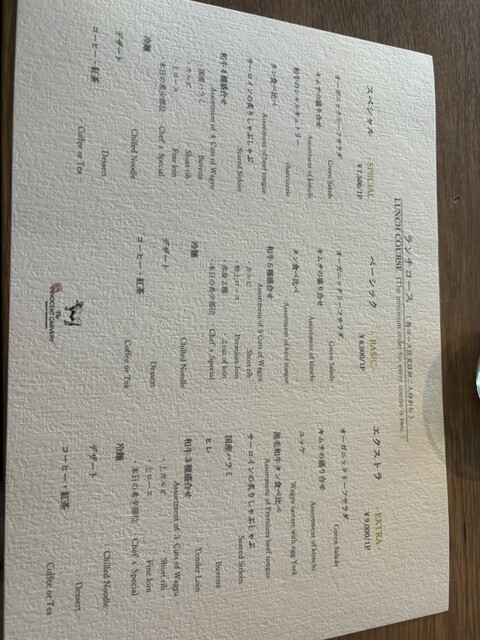 ランチコース
LUNCH COURSE (The minimum order for every course is two.)
スペシャル -SPECIAL-
¥7,500/1P
オーガニックリーフサラダ Green Salads
キムチの盛り合せ Assortment of kimchi
和牛のシャルキュトリー charcuterie
タン食べ比べ Assortment of beef tongue
サーロインの炙りしゃぶしゃぶ Seared Sirloin
和牛4種盛合せ Assortment of 4 Cuts of Wagyu
国産ハラミ Bavette
・カルビ Short rib
・上ロース Fine loin
・本日の希少部位 Chef's Special
冷麺 Chilled Noodle
デザート Dessert
コーヒー・紅茶 Coffee or Tea
ベーシック -BASIC-
¥6,000/1P
オーガニックリーフサラダ Green Salads
キムチの盛り合せ Assortment of kimchi
タン食べ比べ Assortment of beef tongue
和牛5種盛合せ Assortment of 5 Cuts of Wagyu
・カルビ Short rib
・特上ロース Premium loin
・赤身2種 2 cuts of lean
・本日の希少部位 Chef's Special
冷麺 Chilled Noodle
デザート Dessert
コーヒー・紅茶 Coffee or Tea
The
INNOCENT CARVERY
エクストラ -EXTRA-
¥9,000/1P
オーガニックリーフサラダ Green Salads
キムチの盛り合せ Assortment of kimchi
ユッケ Wagyu tartare with egg York
黒毛和牛タン食べ比べ Assortment of Premium beef tongue
サーロインの炙りしゃぶしゃぶ Seared Sirloin
国産ハラミ Bavette
ヒレ Tender Loin
和牛3種盛合せ Assortment of 3 Cuts of Wagyu
・上カルビ Short rib
・上ロース Fine loin
・本日の希少部位 Chef's Special
冷麺 Chilled Noodle
デザート Dessert
コーヒー・紅茶 Coffee or Tea